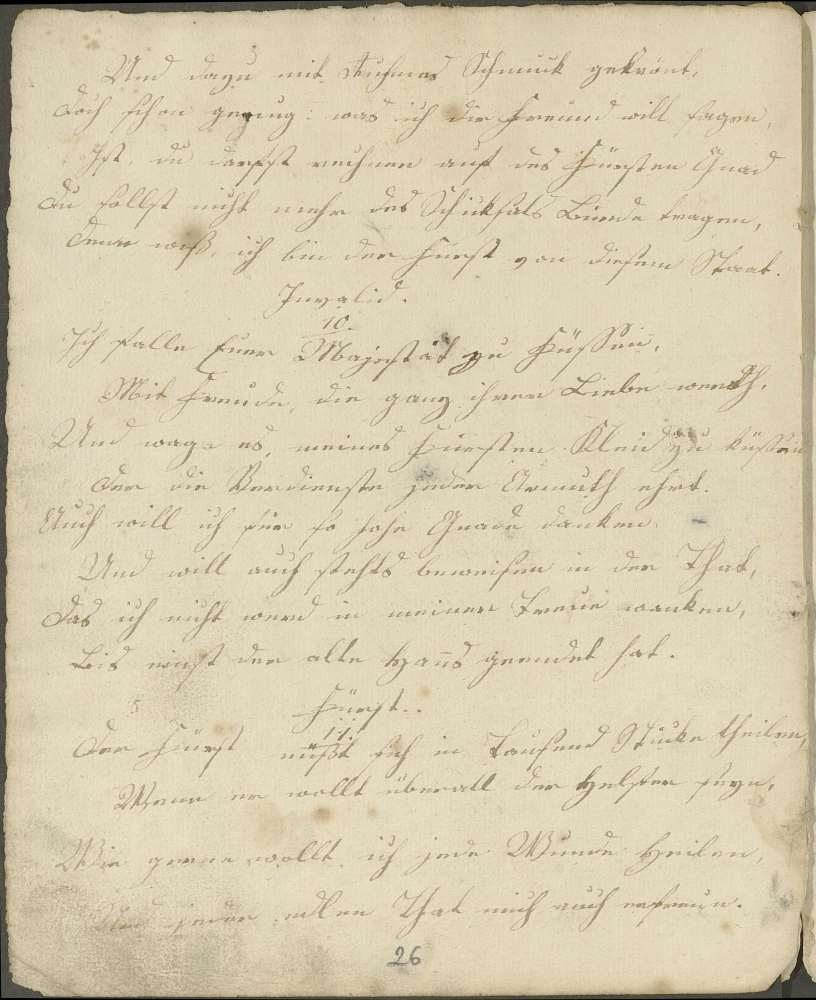 Und dazu mit Ruhmes Schmuck gekrönt,
Doch schon genug: was ich dir Freund will sagen,
Ist, du darfst rechnen auf des Fürsten Gnad
Du sollst nicht mehr des Schicksals Bürde tragen,
Denn wiß, ich bin der Fürst von diesem Staat.
Invalid.
10.
Ich falle Euer Majestät zu Füssen,
Mit Freude, die ganz ihrer Liebe werth,
Und wage es, meines Fürsten Kleid zu küssen
Der die Verdienste jeder Armuth ehrt.
Auch will ich für so hohe Gnade danken
Und will auch stehts beweisen in der That,
Das ich nicht werd in meiner Treue wanken,
Bis einst der alte Hans geendet hat.
Fürst.
11.
Der Fürst müßt sich in Tausend Stücke theilen,
Wenn er wollt überall der Helfer seyn,
Wie gerne wollt ich jede Wunde Heilen,
Und jeder edlen That mich auch erfreun.
26